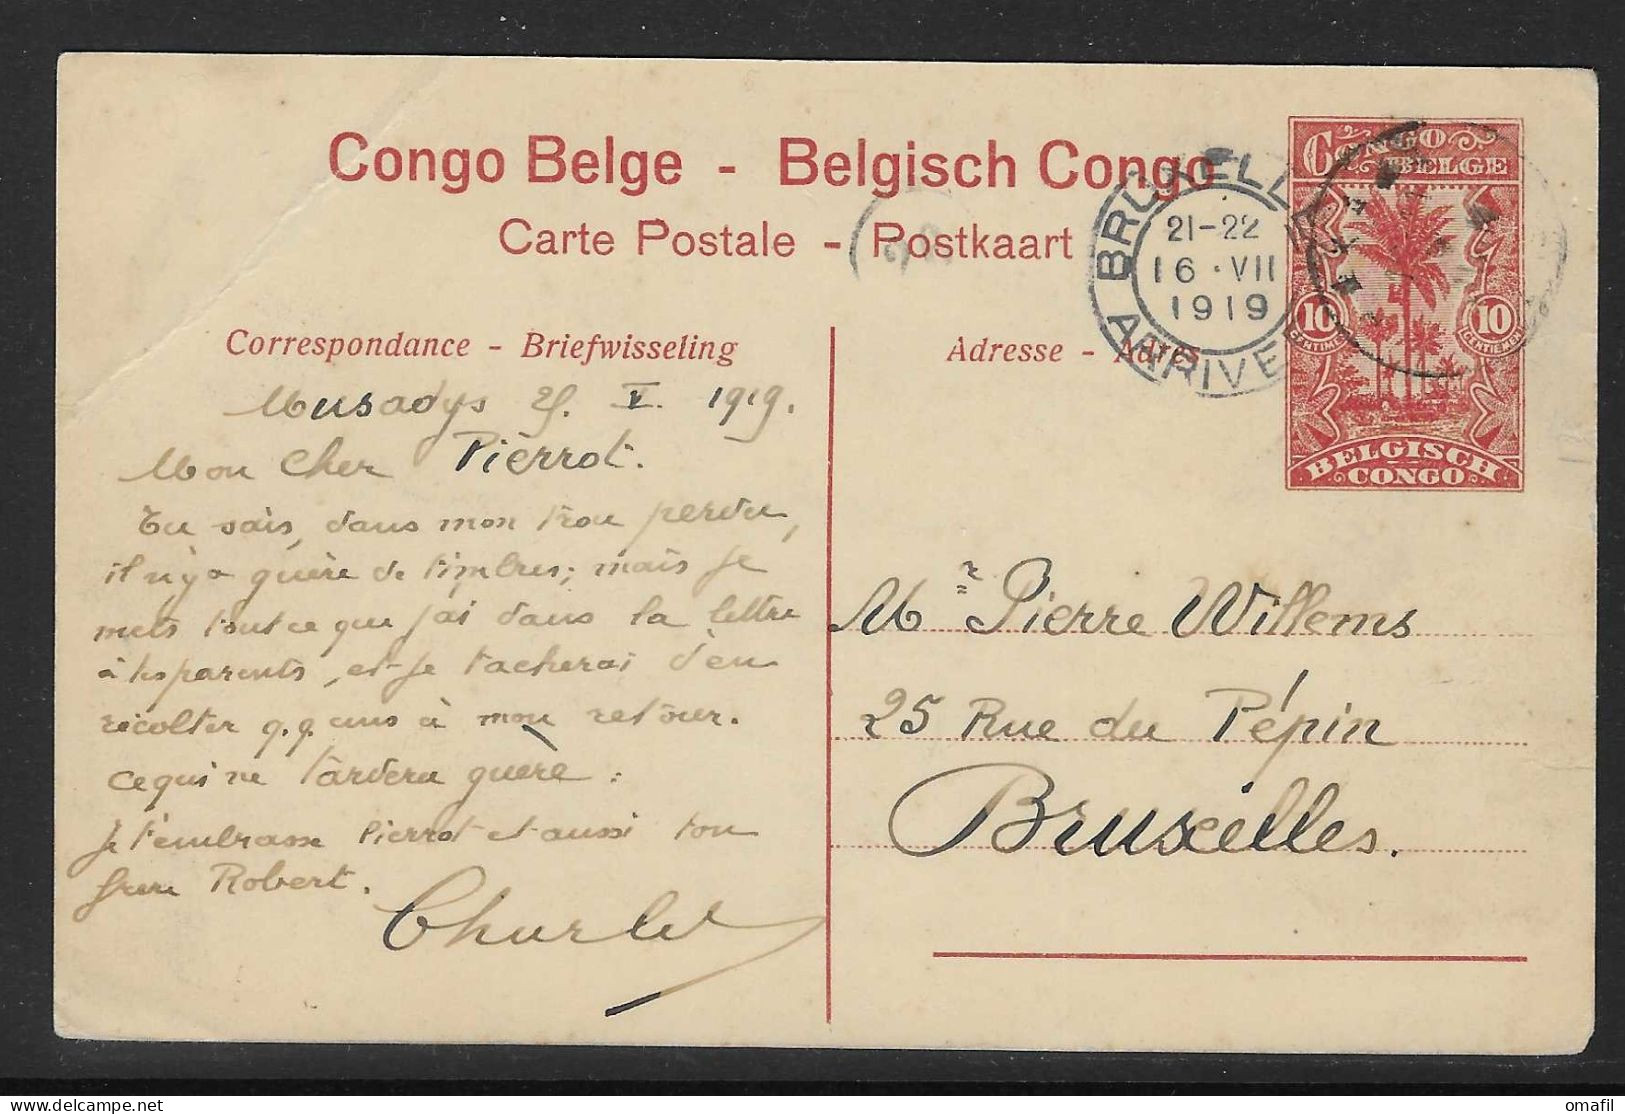 Congo Belge - Belgisch Congo
Carte Postale - Postkaart
Correspondance - Briefwisseling
Musadys 25. V. 1919.
Mon Cher Pierrot.
Tu sais, dans mon trou perdu,
il n'y a guère de timbres; mais je
mets tout ce que j'ai dans la lettre
à tes parents, et je tacherai d'en
récolter q.q uns à mon retour.
ce qui ne tardera guère.
Je t'embrasse Pierrot et aussi ton
frère Robert.
Charles
Adresse - Adres
BRUXELLES
21-22
16 · VII
1919
ARRIVE
CONGO
BELGE
10
CENTIMES
10
CENTIEMEN
BELGISCH
CONGO
Mr Pierre Willems
25 Rue du Pépin
Bruxelles.
delcampe.net
omafil